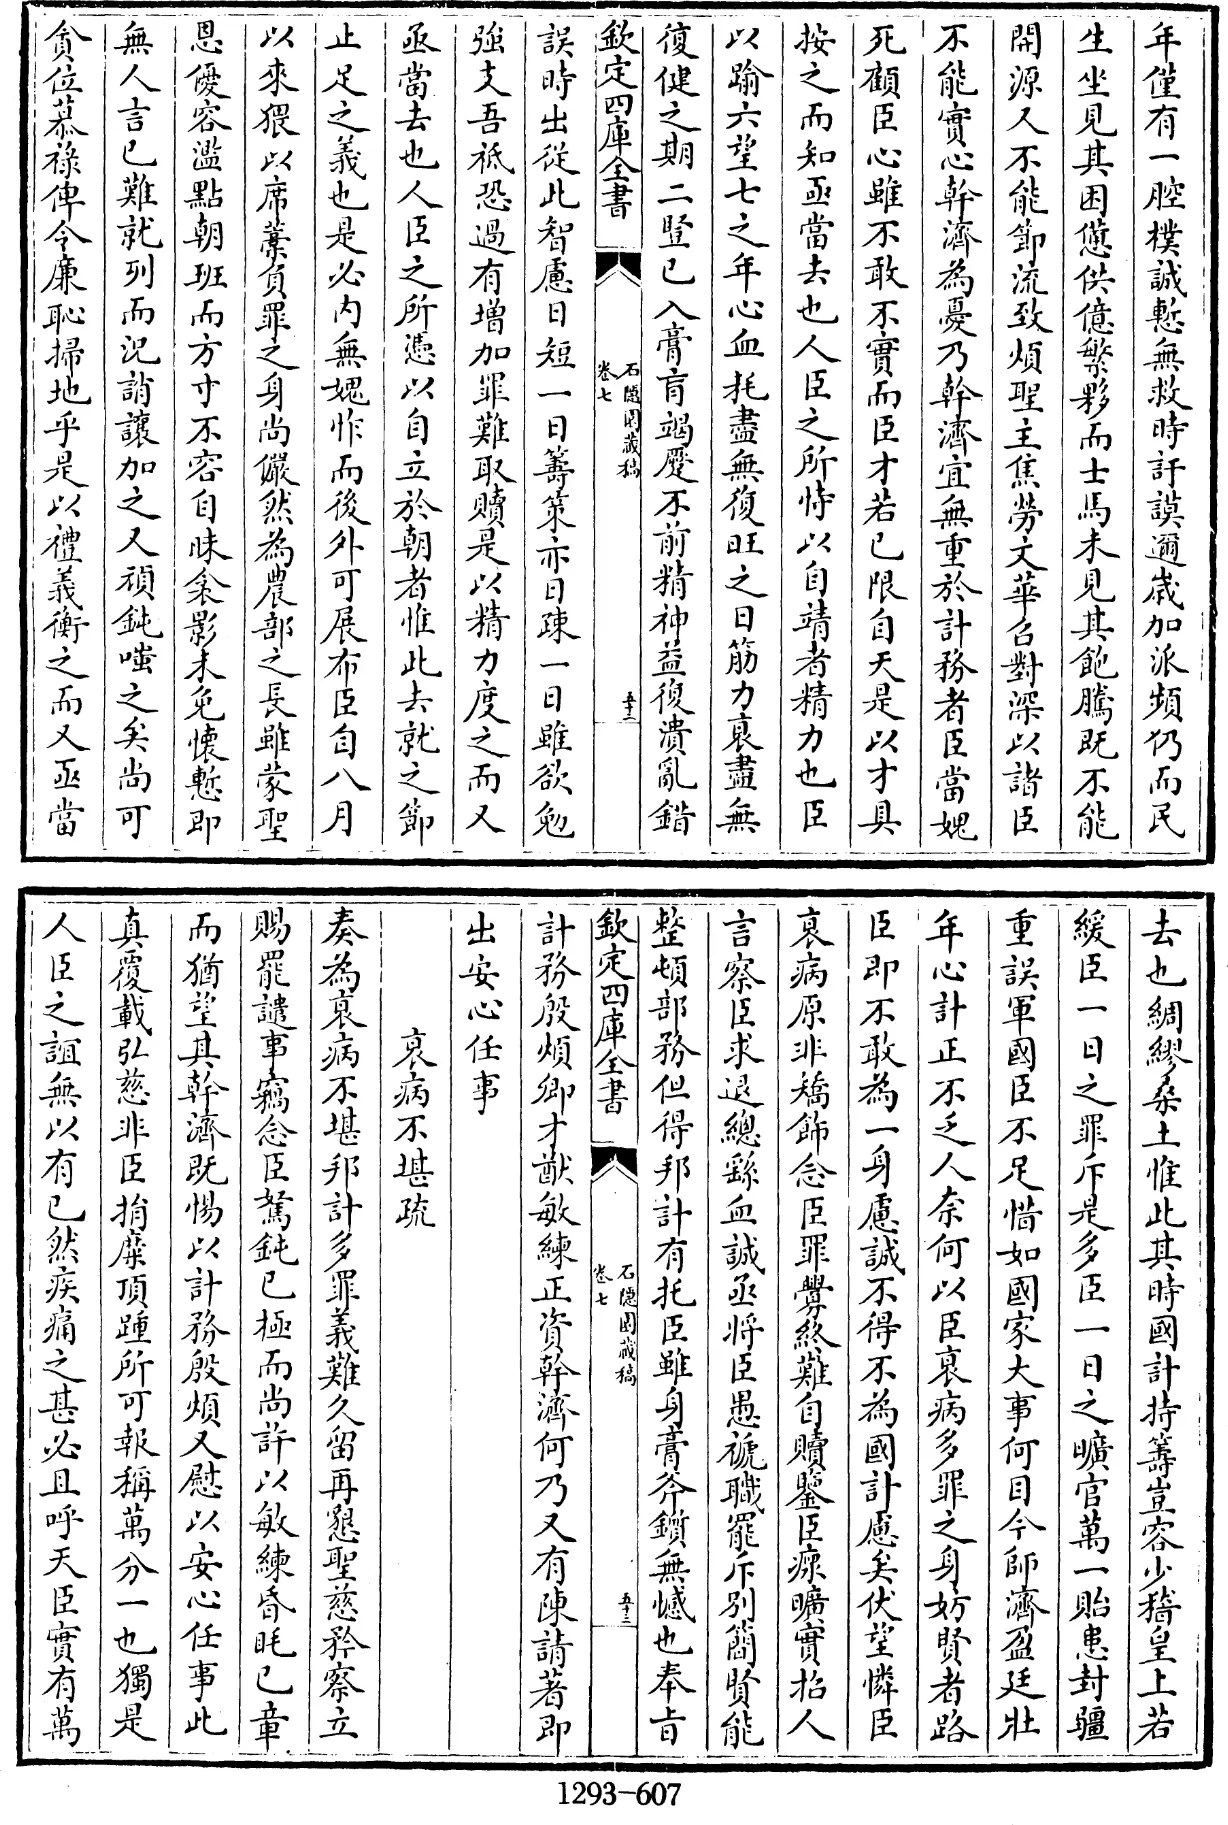 年僅有一腔樸誠慙無救時訏謨邇歲加派頻仍而民
生坐見其困憊供億繁夥而士馬未見其飽騰既不能
開源又不能節流致煩聖主焦勞文華召對深以諸臣
不能實心幹濟為憂乃幹濟宜無重於計務者臣當媿
死顧臣心雖不敢不實而臣才若已限自天是以才具
按之而知亟當去也人臣之所恃以自靖者精力也臣
以踰六望七之年心血耗盡無復旺之日筋力衰盡無
復健之期二豎已入膏肓竭蹷不前精神益復潰亂錯
欽定四庫全書
石隱園藏稿
卷七
五十二
誤時出從此智慮日短一日籌策亦日踈一日雖欲勉
強支吾祗恐過有增加罪難取贖是以精力度之而又
亟當去也人臣之所憑以自立於朝者惟此去就之節
止足之義也是必内無媿怍而後外可展布臣自八月
以來猥以席藁負罪之身尚儼然為農部之長雖蒙聖
恩優容濫點朝班而方寸不容自昧衾影未免懐慙即
無人言已難就列而况誚讓加之又頑鈍嗤之矣尚可
貪位慕祿俾令廉恥掃地乎是以禮義衡之而又亟當
去也綢繆桑土惟此其時國計持籌豈容少稽皇上若
緩臣一日之罪斥是多臣一日之曠官萬一貽患封疆
重誤軍國臣不足惜如國家大事何目今師濟盈廷壯
年心計正不乏人奈何以臣衰病多罪之身妨賢者路
臣即不敢為一身慮誠不得不為國計慮矣伏望憐臣
衰病原非矯飾念臣罪釁終難自贖鑒臣瘝曠實招人
言察臣求退總繇血誠亟將臣愚褫職罷斥別簡賢能
整頓部務但得邦計有托臣雖身膏斧鑕無憾也奉旨
欽定四庫全書
石隱園藏稿
卷七
五十三
計務殷煩卿才猷敏練正資幹濟何乃又有陳請著即
出安心任事
衰病不堪疏
奏為衰病不堪邦計多罪義難久留再懇聖慈矜察立
賜罷譴事竊念臣駑鈍已極而尚許以敏練昏眊已章
而猶望其幹濟既惕以計務殷煩又慰以安心任事此
真覆載弘慈非臣捐糜頂踵所可報稱萬分一也獨是
人臣之誼無以有已然疾痛之甚必且呼天臣實有萬
1293-607